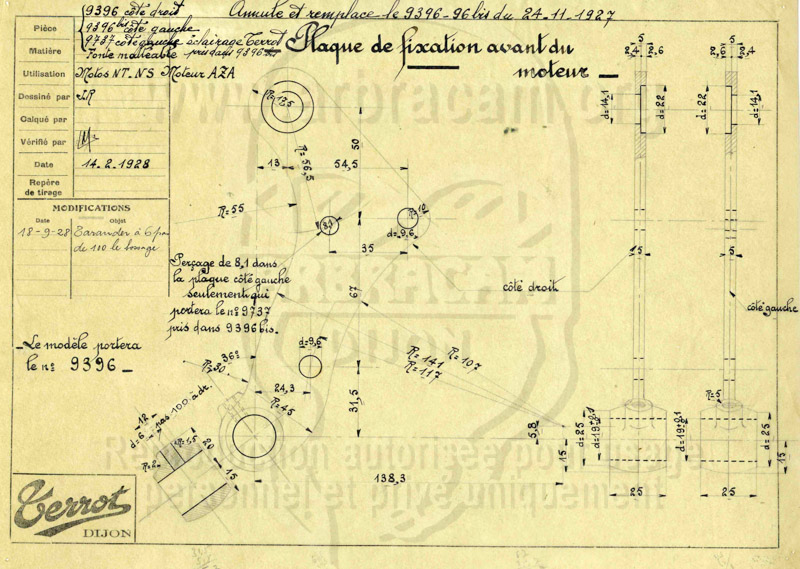 Pièce
9396 côté droit
9396 bis côté gauche
9737 côté gauche éclairage Terrot
pris dans 9396
Annule et remplace le 9396-96 bis du 24.11.1927
Matière
Fonte malléable
Utilisation
Motos NT-NS Moteur AZA
Dessiné par
Calqué par
Vérifié par
Date
14.2.1928
Repère
de tirage
MODIFICATIONS
Date
Objet
18-9-28
Tarauder à 6 pas
de 100 le bossage
Plaque de fixation avant du
moteur
R=13,5
13
R=56,5
54,5
50
R=55
8,1
R=10
d=9,6
35
67
Perçage de 8,1 dans
la plaque côté gauche
seulement qui
portera le n° 9737
pris dans 9396 bis.
Le modèle portera
le n° 9396
côté droit
côté gauche
d=9,6
36°
R=30
24,3
R=45
31,5
R=141
R=107
R=117
12
d=6
pas 100 à dr.
20
15
138,3
5,8
15
5
2,4
6
d=14,1
d=22
5
25
d=25
d=19+0,1
5
d=22
d=14,1
5
R=5
d=19+0,1
d=25
25
15
Terrot
DIJON
www.barbracam.org
Reproduction autorisée pour usage
personnel et privé uniquement